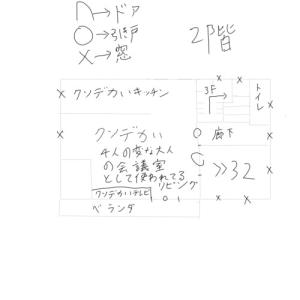 ∩→ドア
○→引き戸
×→窓
2階
クソデカいキッチン
3F
トイレ
クソデカい
4人の変な大人
の会議室
として使われてる
リビング
廊下
>>32
クソデカいテレビ
ベランダ